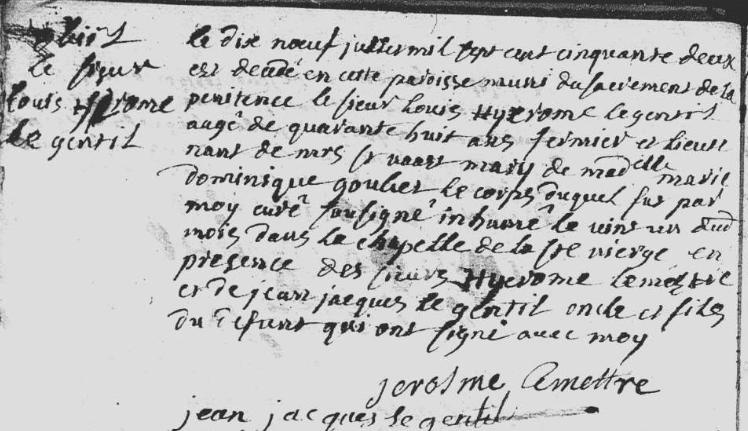 obiit
le sieur
louis hyerome
le gentil
le dix nœuf juillet mil sept cent cinquante deux
est decedé en cette paroisse muni du sacrement de la
penitence le sieur louis hyerome le gentil
augé de quarante huit ans fermier et lieute
nant de mrs st vaast mary de madelle marie
dominique goulier le corps duquel fus par
moy curé sousigné inhumé le vint un dud
mois dans la chapelle de la ste vierge en
presence des sieurs hyerome lemettre
et de jean jacques le gentil oncle et fils
du defunt qui ont signé avec moy
jerosme lemettre
jean jacques le gentil